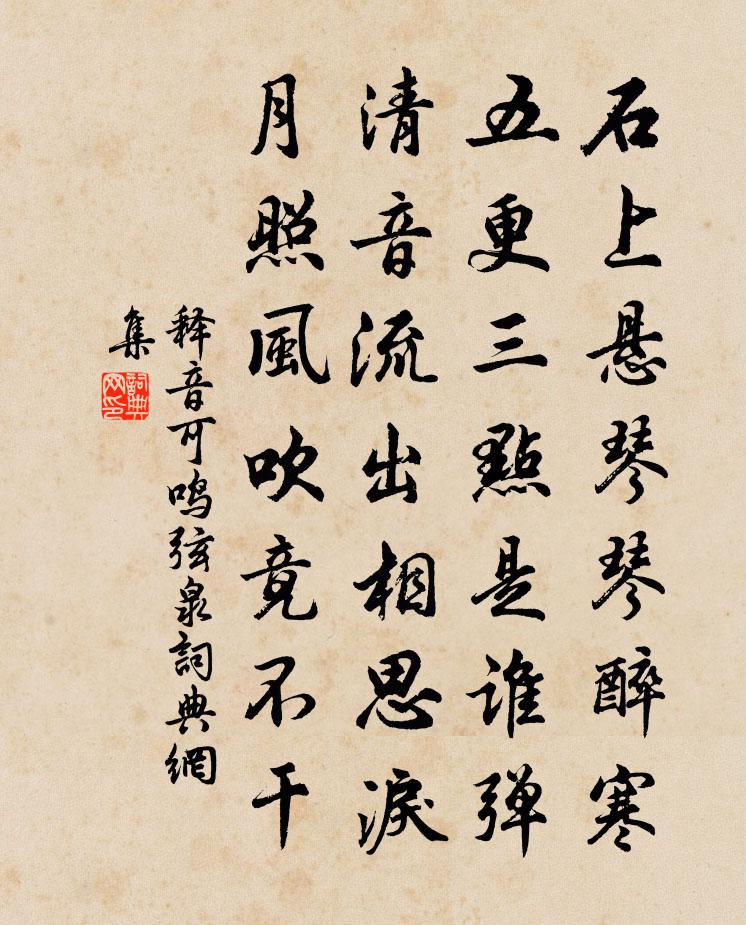 石上悬琴琴醉寒
五更三點是谁弹
清音流出相思淚
月照風吹竟不干
释音可鸣弦泉詞典網
集
詞典网印